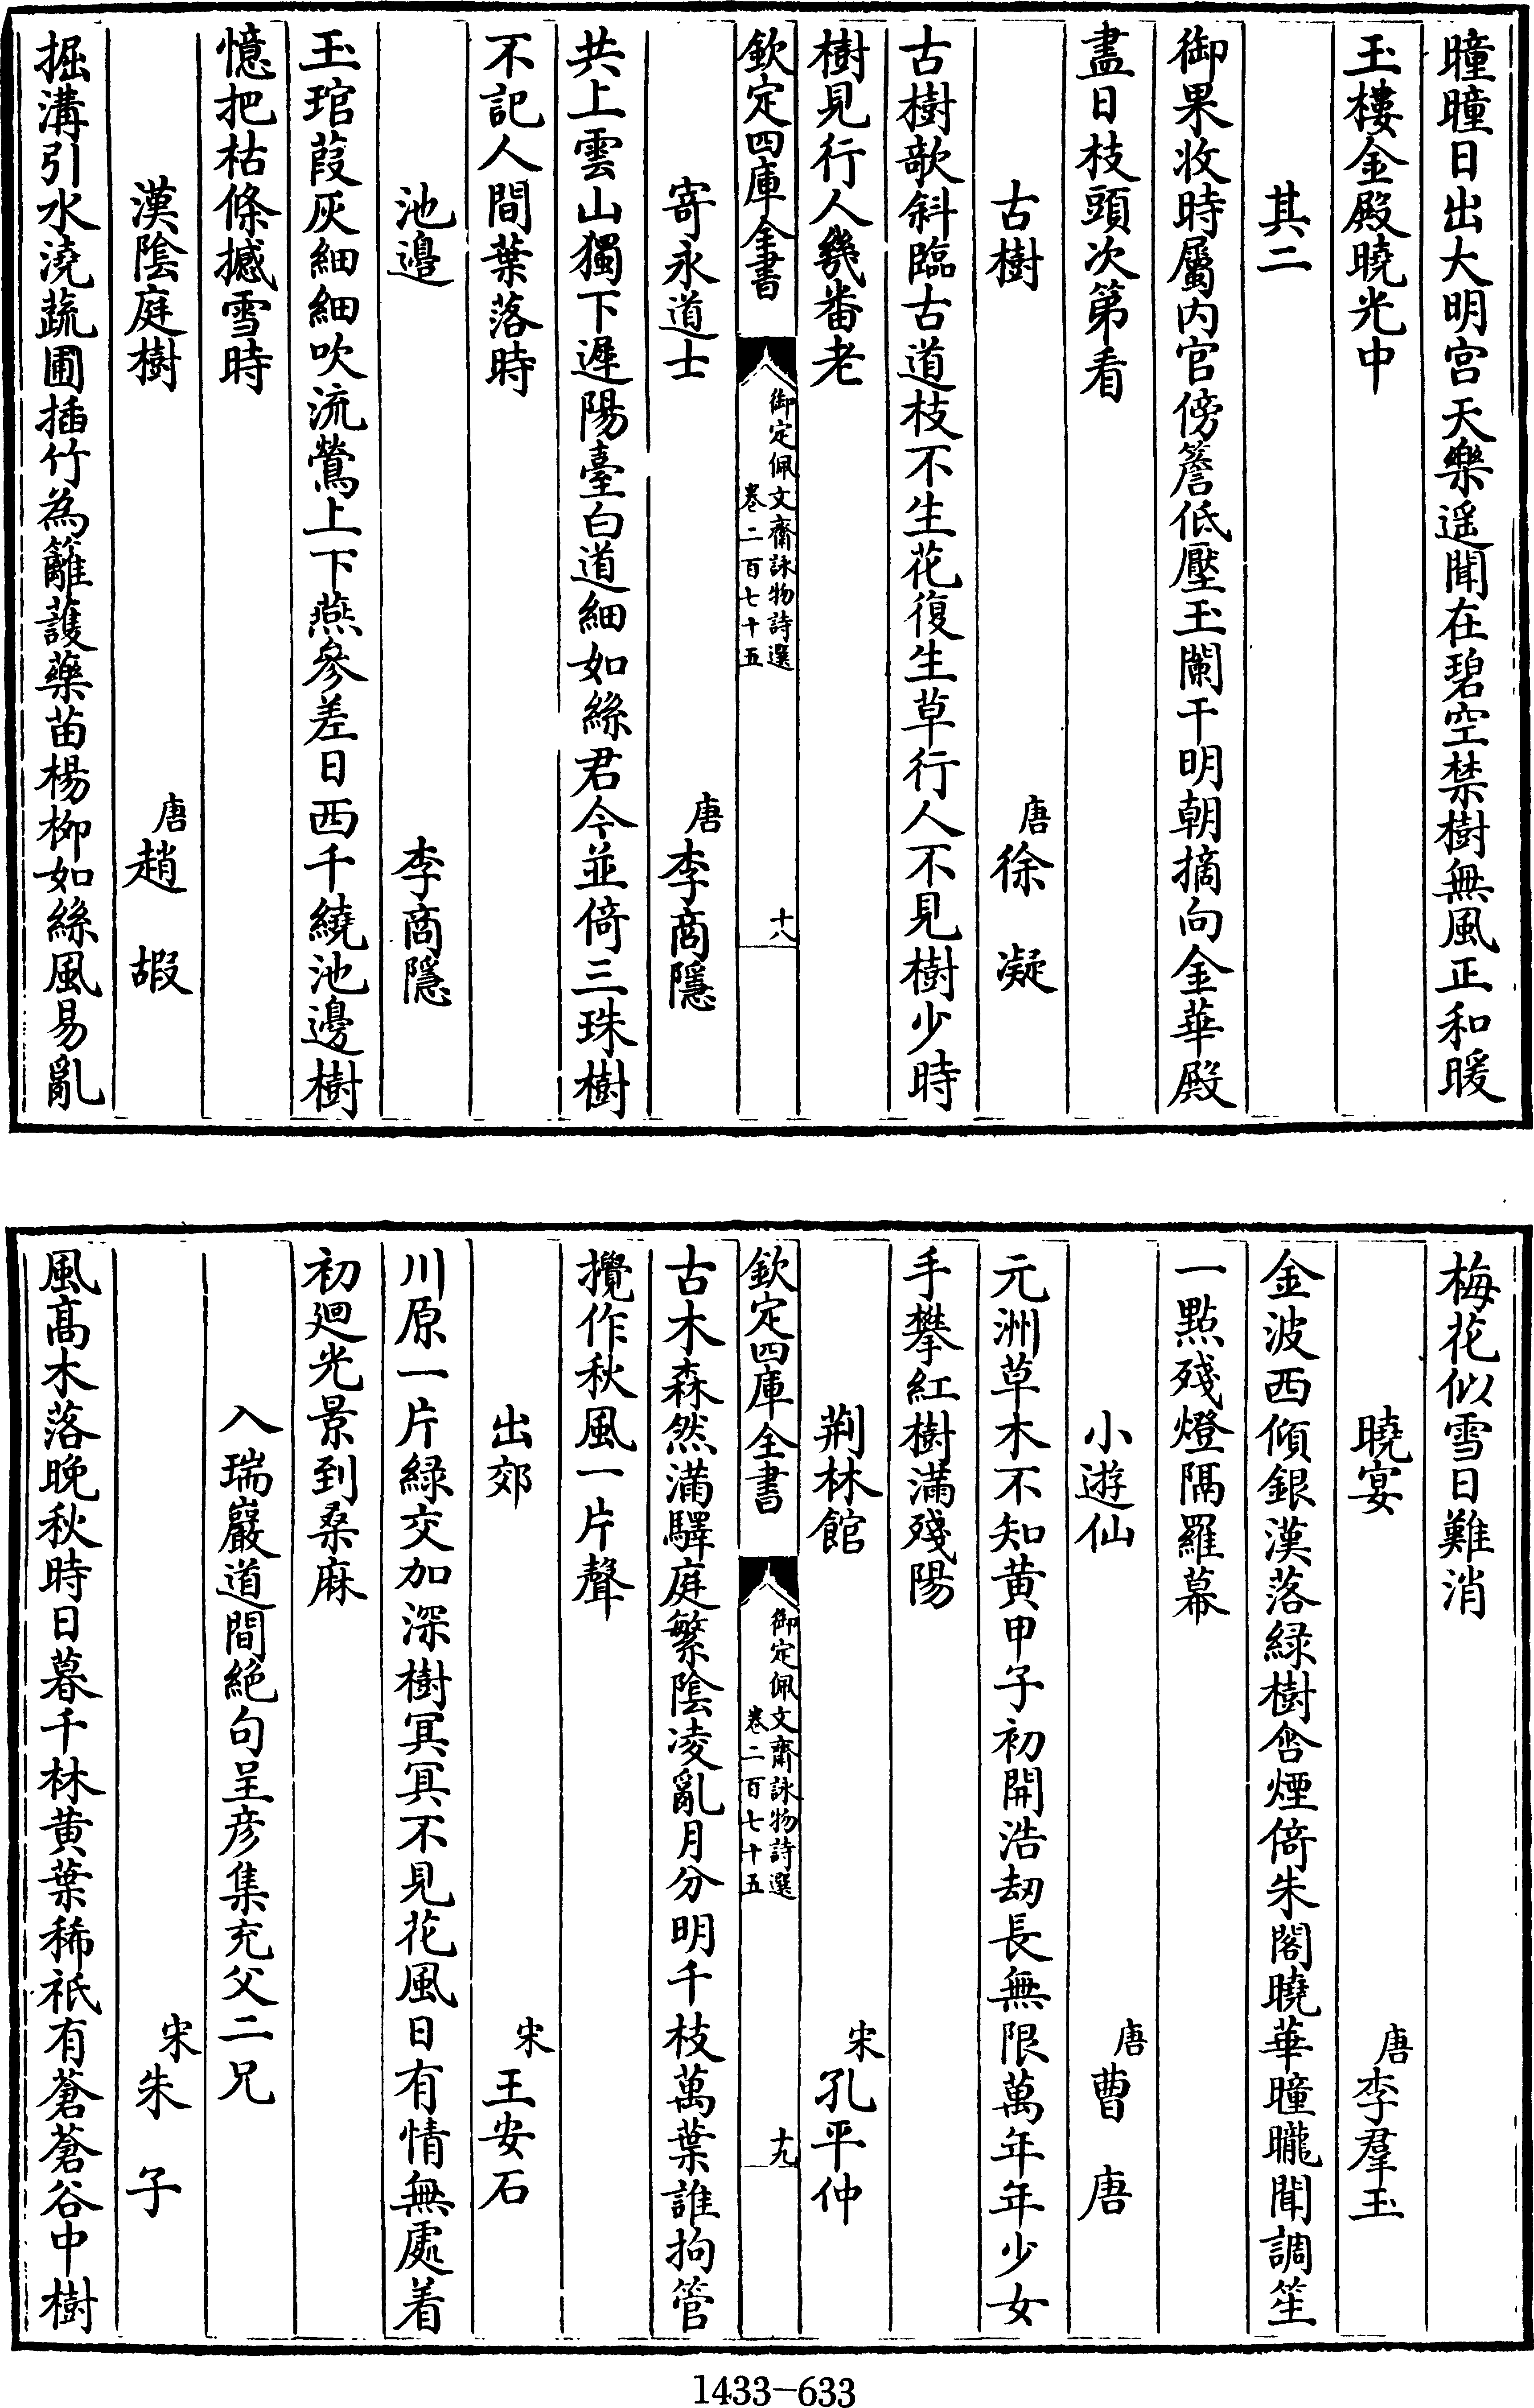 曈曈日出大明宫天樂遥聞在碧空禁樹無風正和暖
玉樓金殿曉光中
其二
御果收時屬内官傍簷低壓玉闌干明朝摘向金華殿
盡日枝頭次第看
古樹　唐徐　凝
古樹欹斜臨古道枝不生花復生草行人不見樹少時
樹見行人幾番老
欽定四庫全書　御定佩文齋詠物詩選　卷二百七十五　十八
寄永道士　唐李商隱
共上雲山獨下遲陽臺白道細如絲君今並倚三珠樹
不記人間葉落時
池邊　李商隱
玉琯葭灰細細吹流鶯上下燕參差日西千繞池邊樹
憶把枯條撼雪時
漢陰庭樹　唐趙　嘏
掘溝引水澆蔬圃插竹為籬䕶藥苗楊柳如絲風易亂
梅花似雪日難消
曉宴　唐李羣玉
金波西傾銀漢落緑樹含煙倚朱閣曉華曈曨聞調笙
一點殘燈隔羅幕
小遊仙　唐曹　唐
元洲草木不知黄甲子初開浩刼長無限萬年年少女
手攀紅樹滿殘陽
荆林館　宋孔平仲
欽定四庫全書　御定佩文齋詠物詩選　卷二百七十五　十九
古木森然滿驛庭繁陰凌亂月分明千枝萬葉誰拘管
攪作秋風一片聲
出郊　宋王安石
川原一片緑交加深樹冥冥不見花風日有情無處着
初廻光景到桑麻
入瑞巖道間絶句呈彦集充父二兄
宋朱　子
風髙木落晩秋時日暮千林黄葉稀祇有蒼蒼谷中樹
1433-633